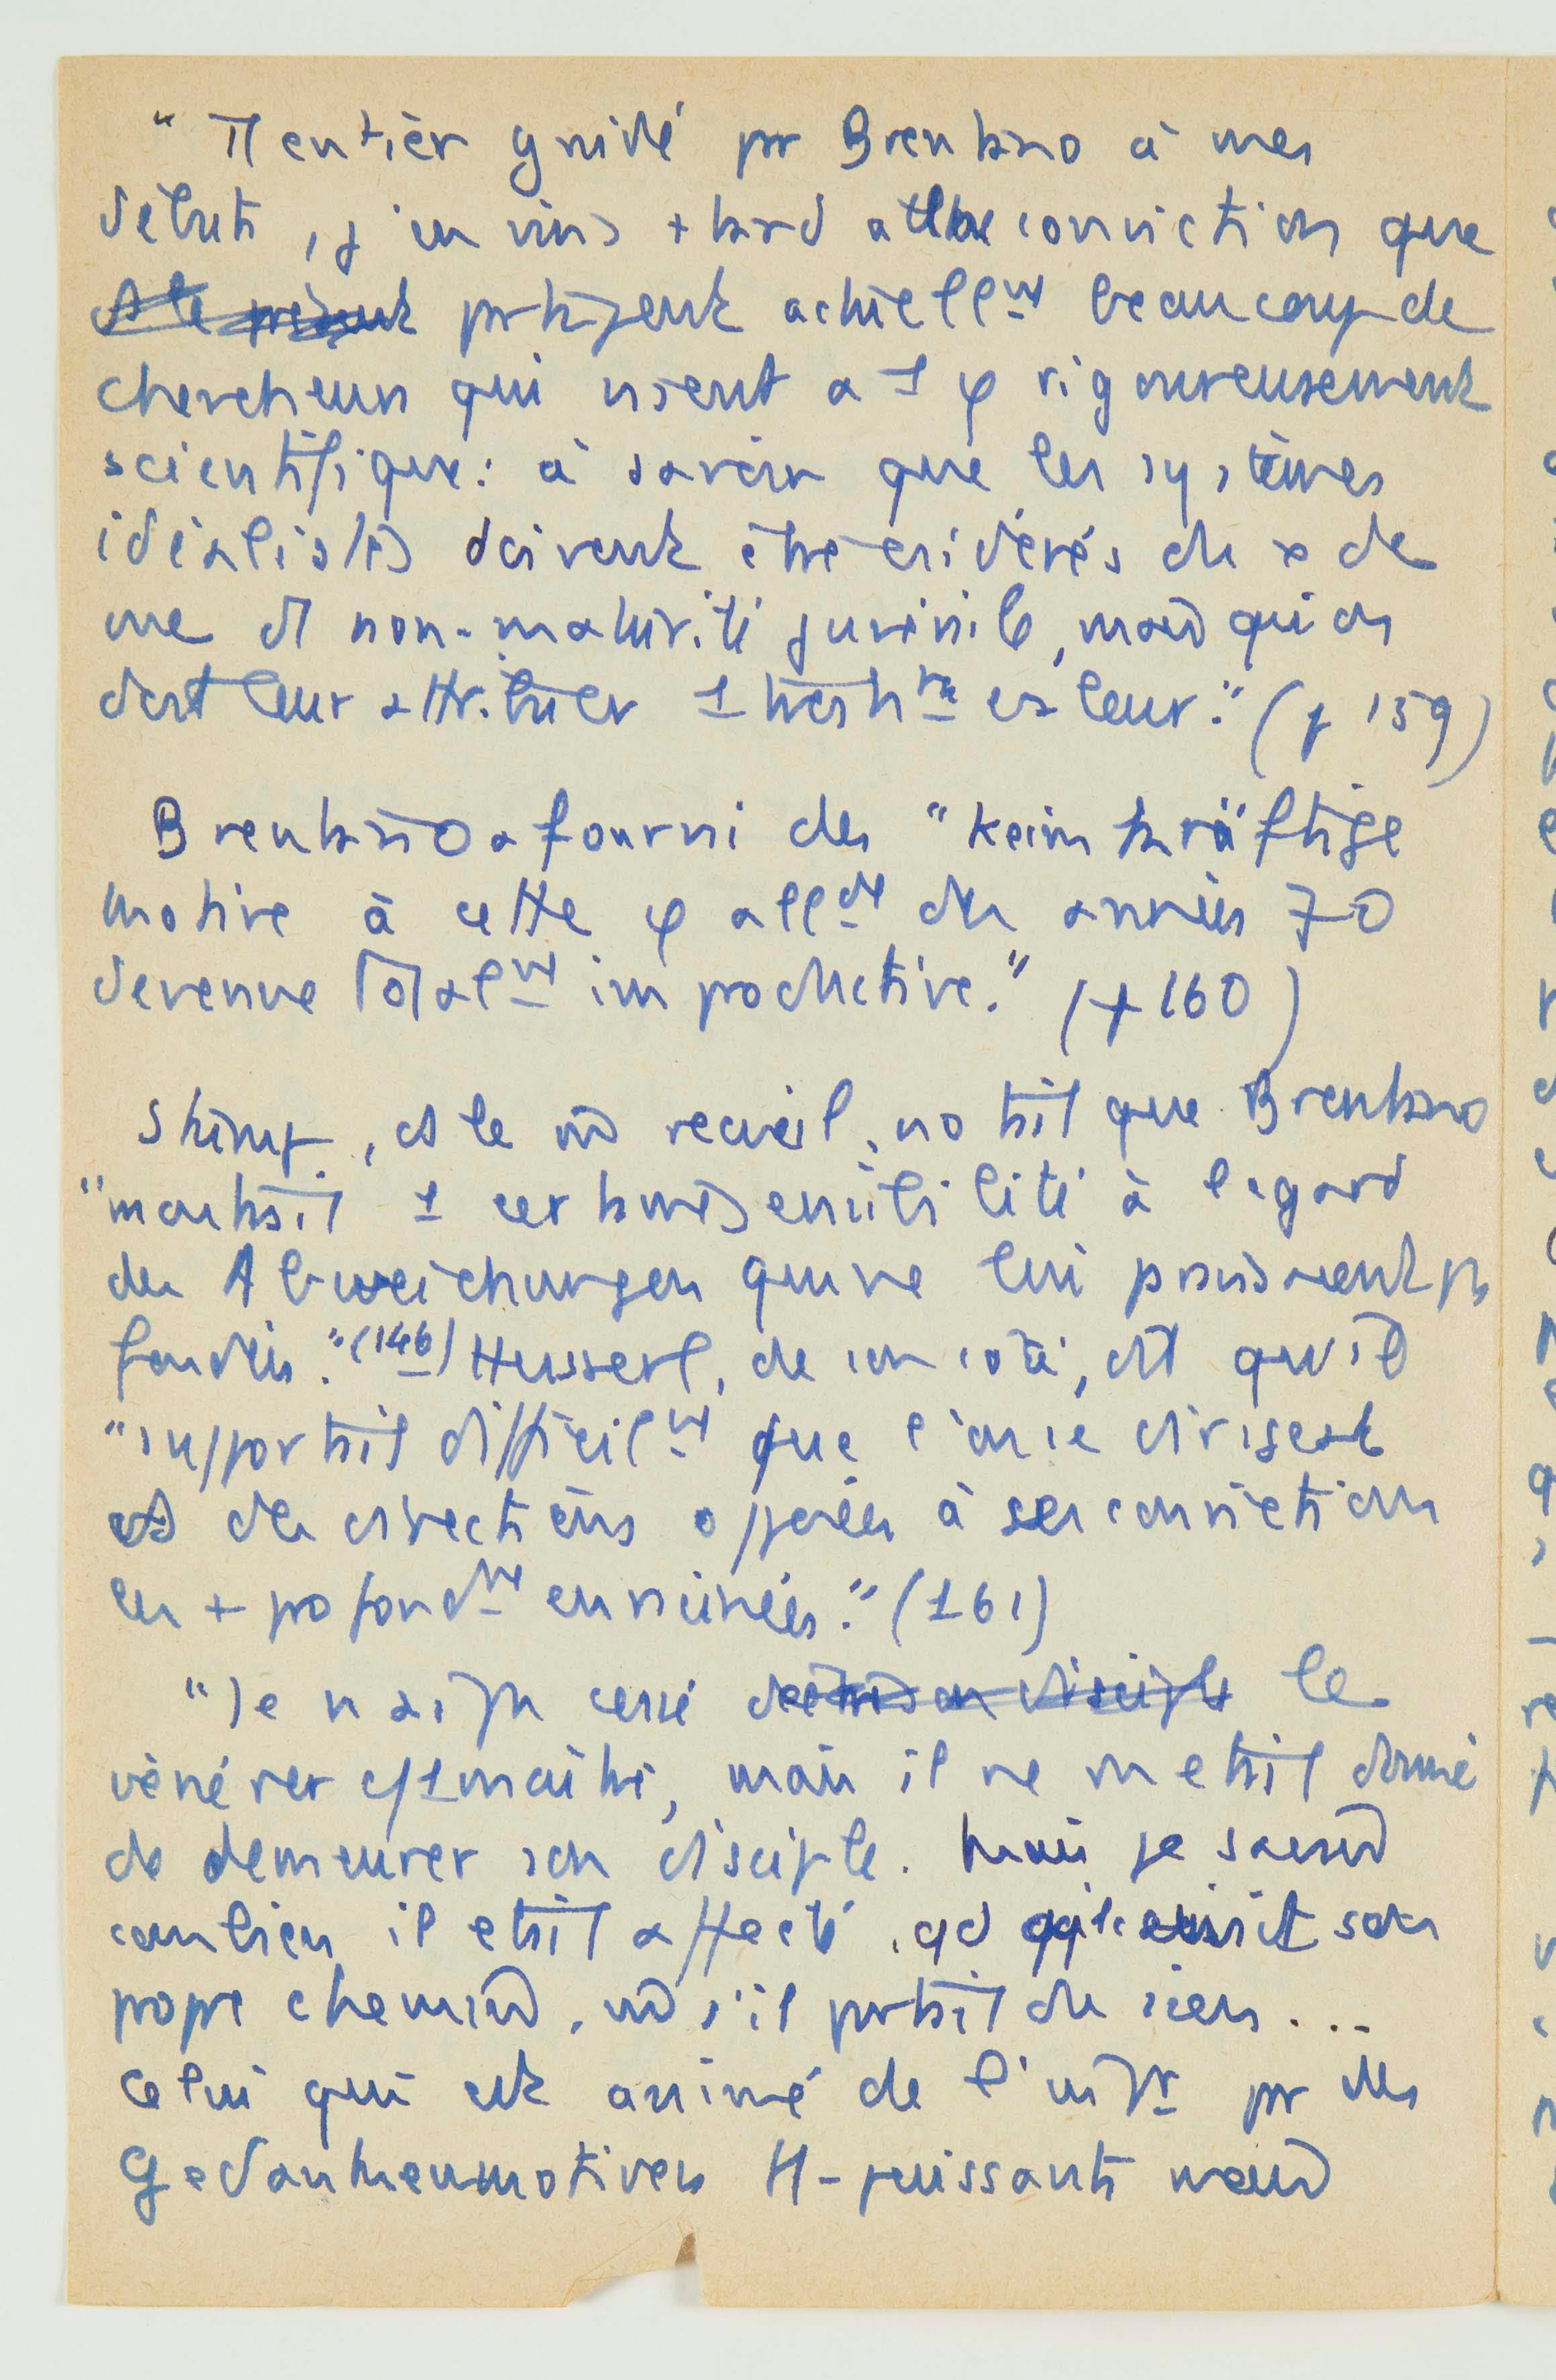 "Tt entier guidé pr Brentano à mes
débuts, j'en vins + tard à la conviction que
partagent actuellmt beaucoup de
chercheurs qui visent à 1 φ rigoureusement
scientifique: à savoir que les systèmes
idéalistes doivent être du de
vue non-maturité juvénile, qu'on
doit leur attribuer 1 valeur." (p 159)
Brentano a fourni des "keimkräftige
motive à cette φ allde des années 70
devenue totalmt improductive." (p 160)
Stumpf, ds le recueil, notait que Brentano
"montrait 1 certaine sensibilité à l'égard
des Abweichungen qui ne lui paraissaient ps
fondées."(146) Husserl, de son côté, dit qu'il
"supportait difficilmt que l'on se dirigeât
ds des directions opposées à ses convictions
les + profondmt enracinées." (161)
"Je n'ai ps cessé de le
vénérer c/1 maître, mais il ne m'était donné
de demeurer son disciple. Mais je savais
combien il était affecté qd suivait son
propre chemin, s'il partait du sien...
Celui qui est animé de l'intr pr des
Gedankenmotiven tt-puissants